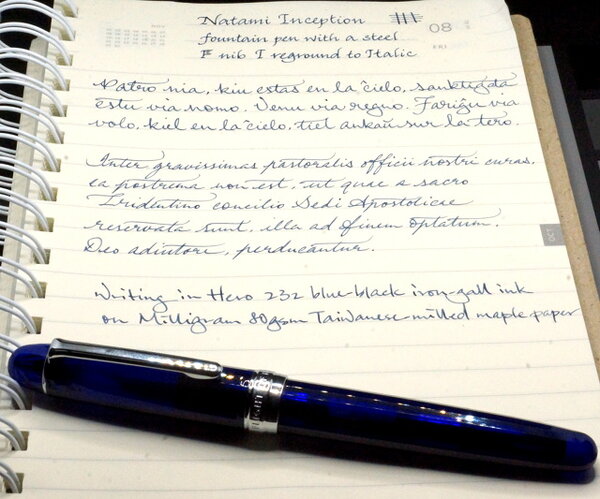 Natami Inception
08
fountain pen with a steel
FRI
F nib I reground to Italic
Patro nia, kiu estas en la ĉielo, sanktigata
estu via nomo. Venu via regno. Fariĝu via
volo, kiel en la ĉielo, tiel ankaŭ sur la tero.
Inter gravissimas pastoralis officii nostri curas,
ea postrema non est, ut quae a sacro
Tridentino concilio Sedi Apostolicae
reservata sunt, illa ad finem optatum,
Deo adiutore, perducantur.
OCT
Writing in Hero 232 blue-black iron-gall ink
on Milligram 80gsm Taiwanese-milled maple paper